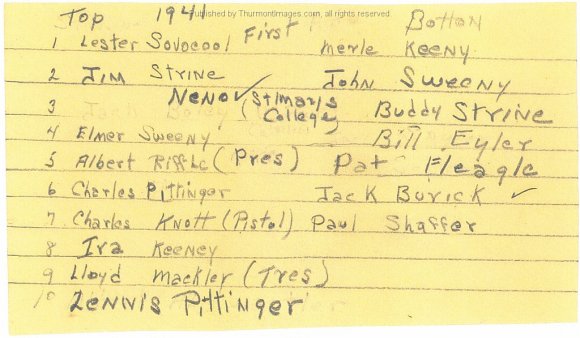 Published by ThurmontImages.com, all rights reserved
Top 1941 First Bottom
1 Lester Sovocool Merle Keeny
2 Jim Strine John Sweeny
3 Neno ✓ (St marys College) Buddy Strine
4 Elmer Sweeny Bill Eyler
5 Albert Riffle (Pres) Pat Fleagle
6 Charles Pittinger Jack Burick ✓
7 Charles Knott (Pistol) Paul Shaffer
8 Ira Keeney
9 Lloyd Mackler (Tres)
10 Lennis Pittinger